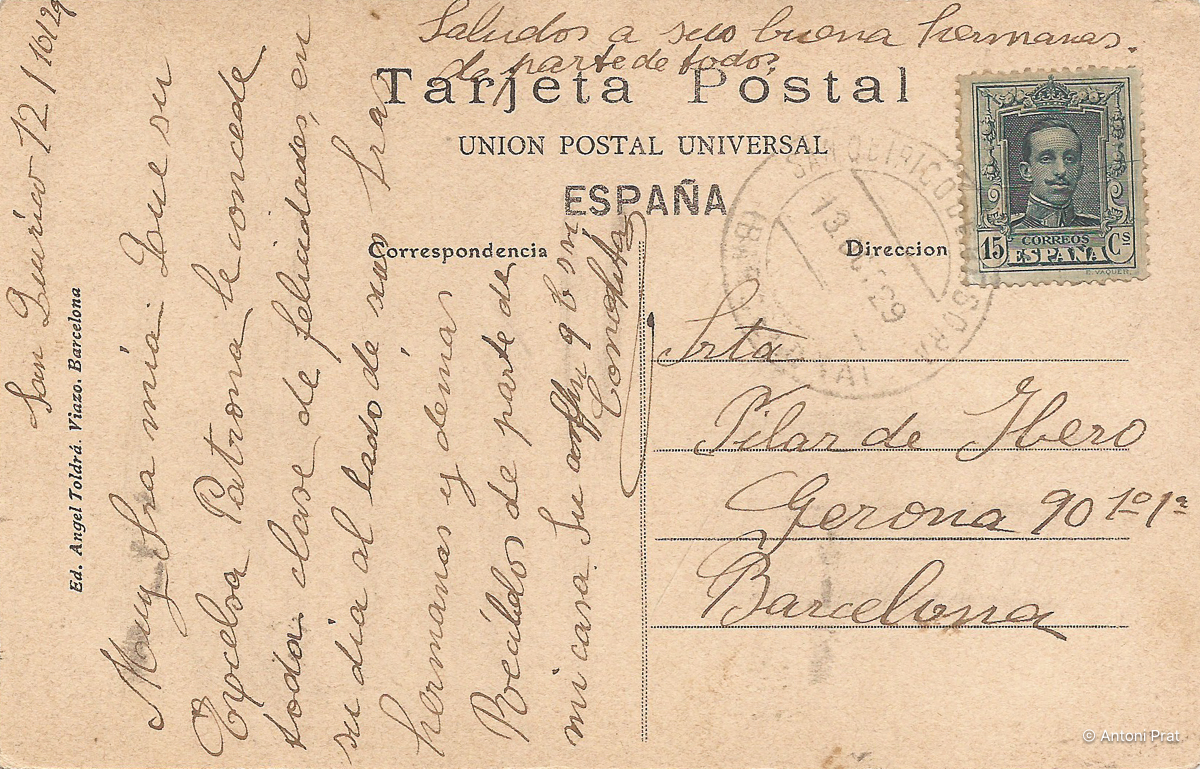 Saludos a sus buena hermanas.
de parte de todos
Tarjeta Postal
UNION POSTAL UNIVERSAL
ESPAÑA
Correspondencia
Direccion
15 CORREOS Cs
ESPAÑA
E. VAQUER
SAN QUIRICO DE
13
29
San Quirico 12/10/29
Muy Sra mia: Que su
Excelsa Patrona le concede
toda clase de felicidades, en
su dia al lado de sus Sras
hermanas y demas
Recibidos de parte de
mi casa. Su y b. sra
Conchita
Srta
Pilar de Ibero
Gerona 90 1º 1ª
Barcelona
Ed. Angel Toldrá. Viazo. Barcelona
© Antoni Prat